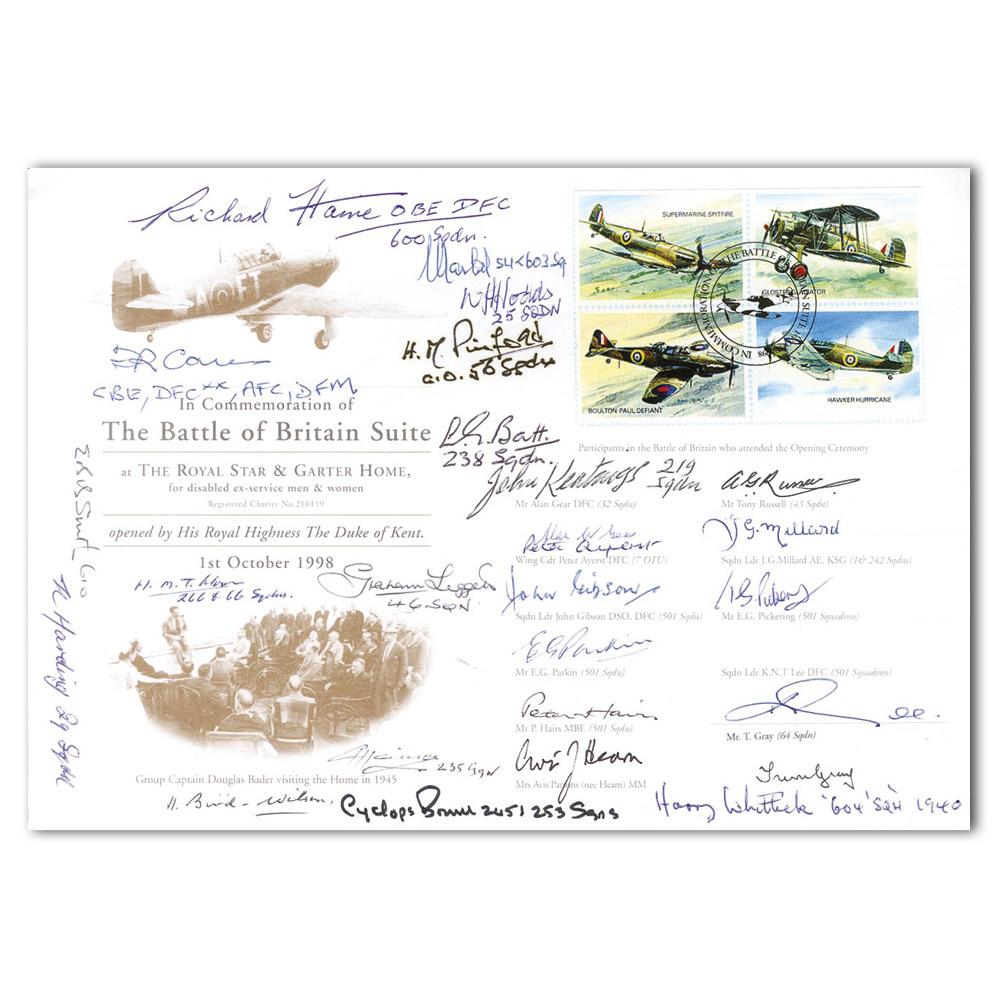 Richard Hame OBE DFC
600 Sqdn.
54 & 603 Sq
25 SQDN
H. M. Pinfold
C.O. 56 Sqdn
CBE, DFC**, AFC, DFM.
SUPERMARINE SPITFIRE
GLOSTER GLADIATOR
BOULTON PAUL DEFIANT
HAWKER HURRICANE
In Commemoration of
The Battle of Britain Suite
at THE ROYAL STAR & GARTER HOME,
for disabled ex-service men & women
Registered Charity No.210119
opened by His Royal Highness The Duke of Kent.
1st October 1998
L.G. Batt.
238 Sqdn.
Participants in the Battle of Britain who attended the Opening Ceremony
John Keatings 219 Sqdn
Mr Alan Gear DFC (32 Sqdn)
Mr Tony Russell (43 Sqdn)
Peter Ayerst
J G. Millard
Wing Cdr Peter Ayerst DFC (7 OTU)
Sqdn Ldr J.G.Millard AE. KSG (1& 242 Sqdns)
John Gibson
Sqdn Ldr John Gibson DSO, DFC (501 Sqdn)
Mr E.G. Pickering (501 Sqdn)
EG Parkin
Mr E.G. Parkin (501 Sqdn)
Sqdn Ldr K.N.T Lee DFC (501 Squadron)
Peter Hairs
Mr P. Hairs MBE (501 Sqdn)
Mr. T. Gray (64 Sqdn)
Avis J Hearn
Mrs Avis Parsons (nee Hearn) MM
Trevor Gray
H. M. T.
266 & 66 Sqdns.
Graham Leggett
46 SQN.
N Harding 29 Sqdn
235 Sqn
Group Captain Douglas Bader visiting the Home in 1945
H. Bird-Wilson.
Cyclops Brown 245/253 Sqns
Harry Whittick '604' Sqn 1940